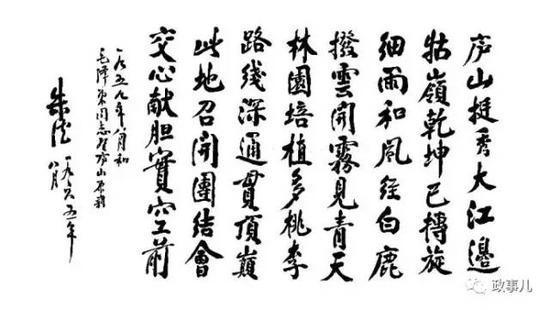 庐山挺秀大江邊
牯嶺乾坤已轉旋
细雨和風經白鹿
撥雲開霧見青天
林園培植多桃李
路线深通貫頂巔
此地召開團结會
交心献胆實空前
一九五九年八月和
毛澤東同志登庐山原韵
朱德 一九六五年
八月
政事儿